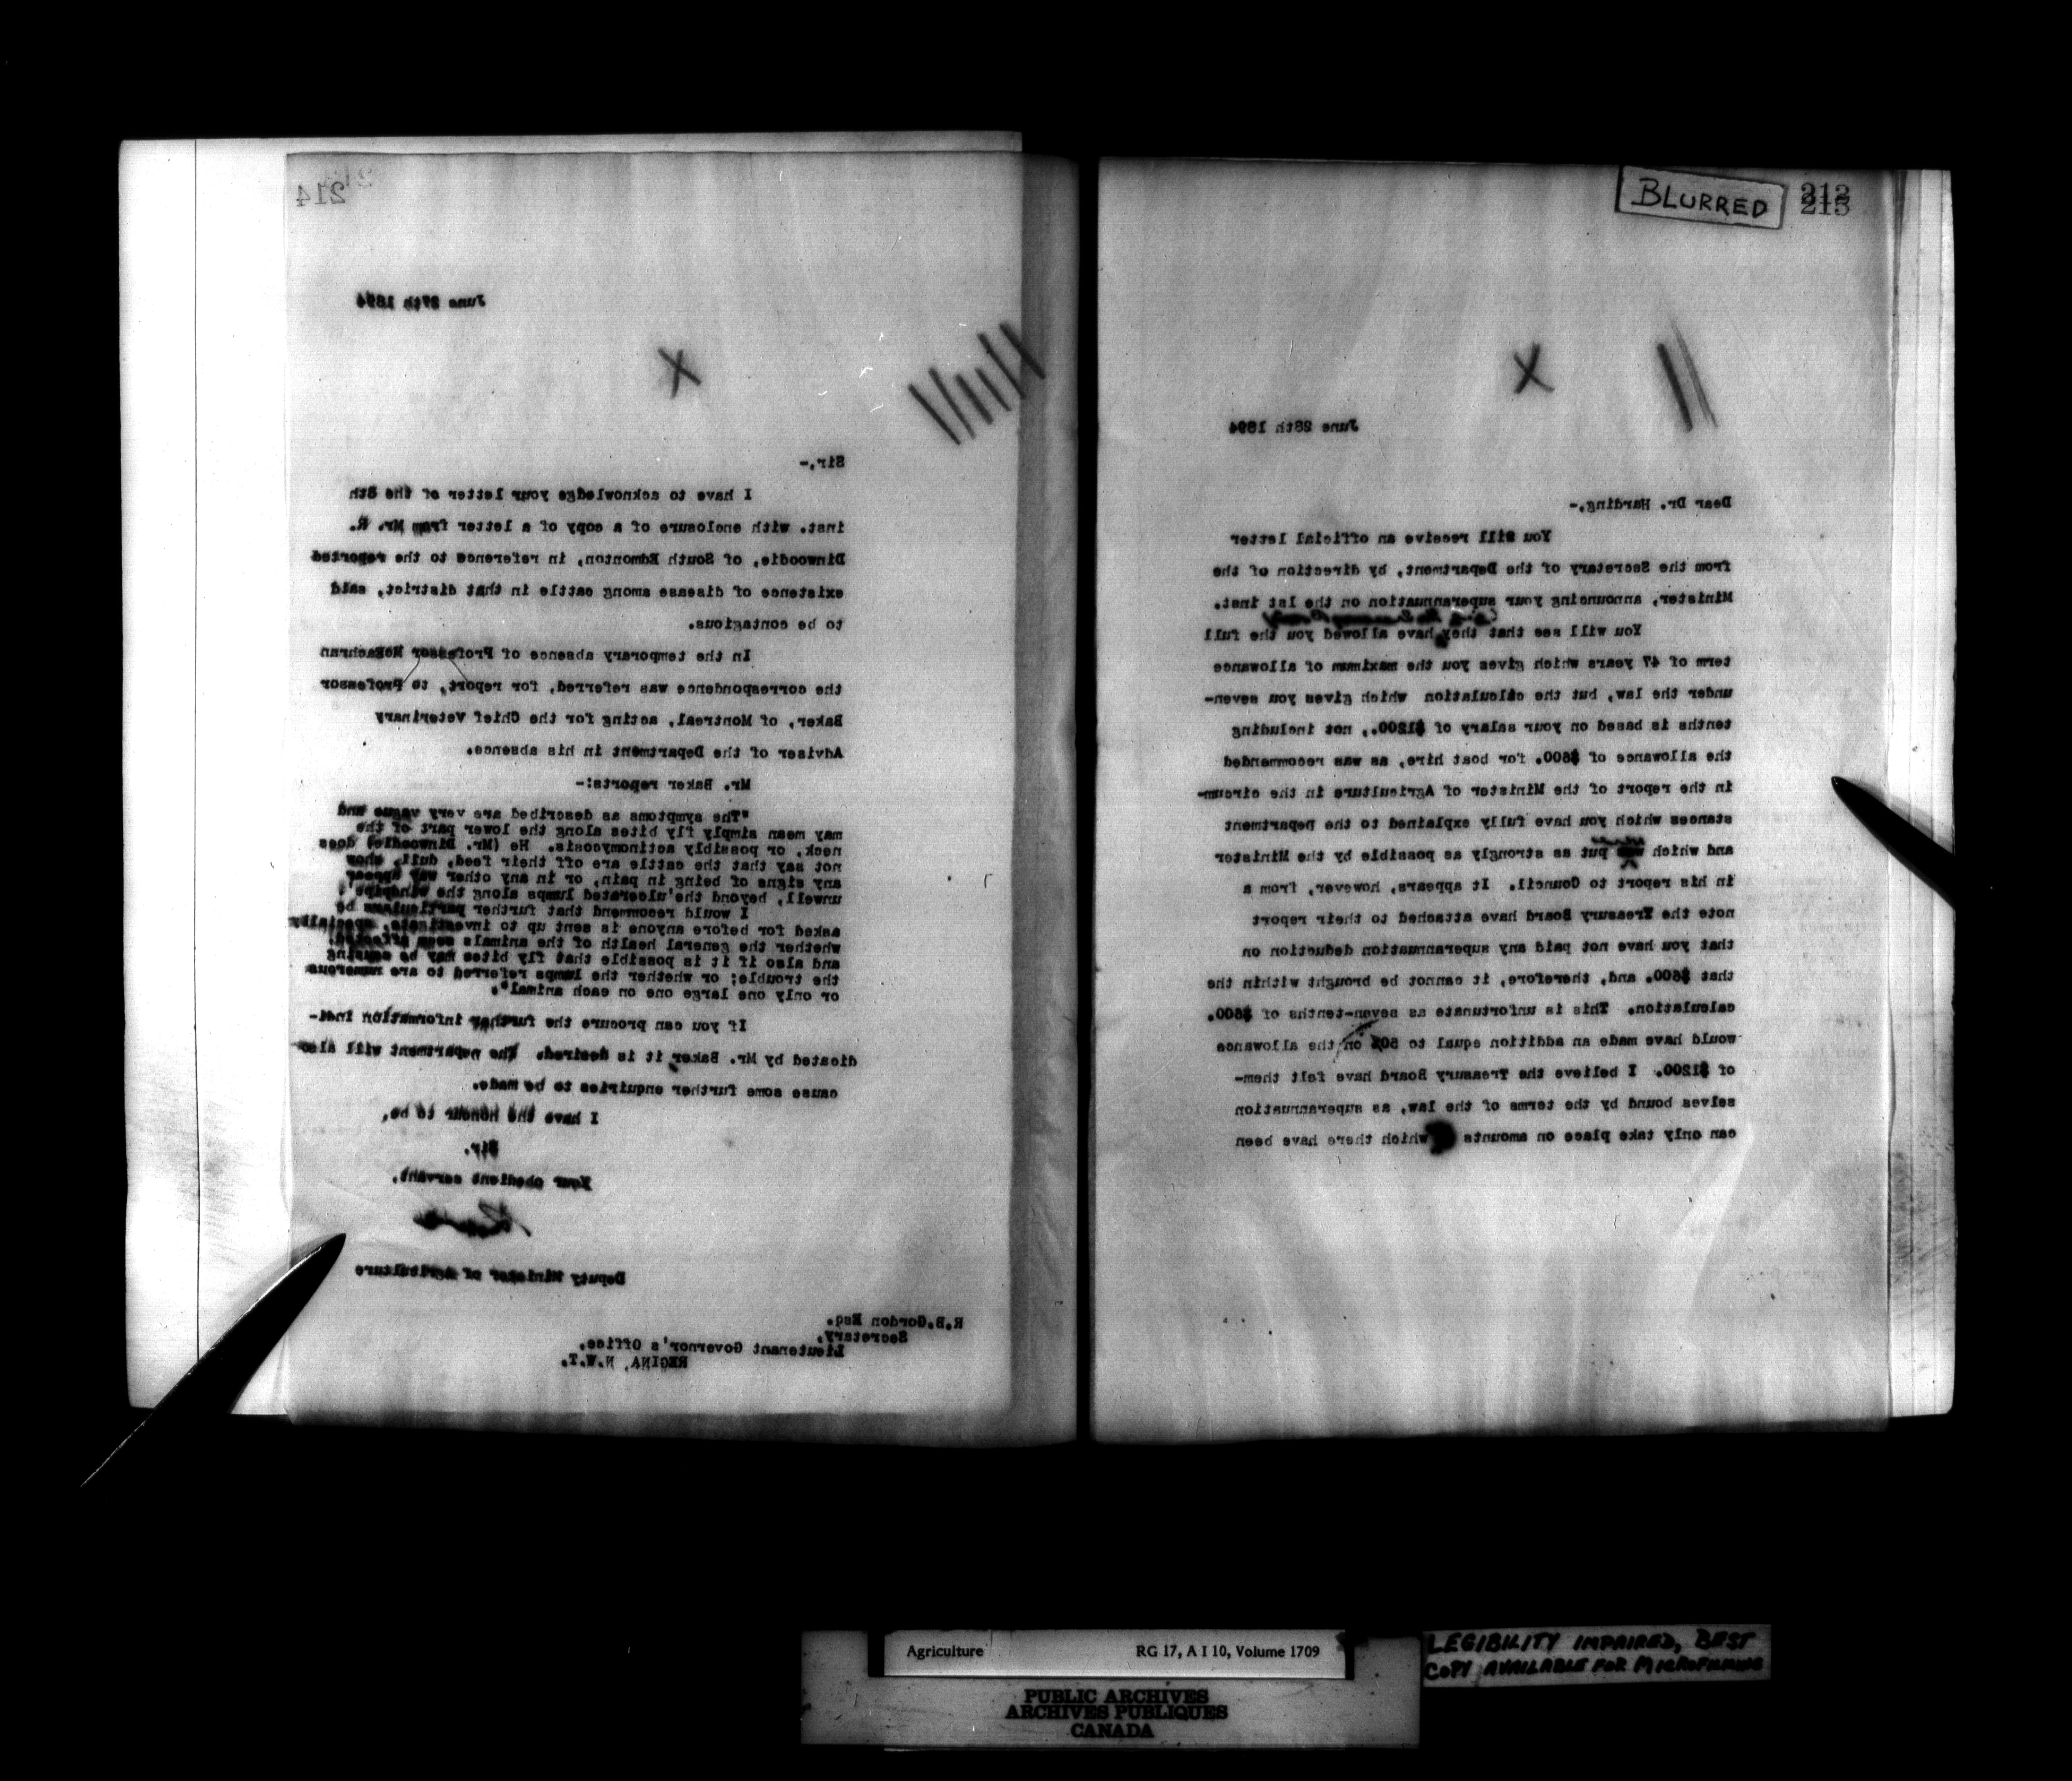 214
June 27th 1894
X
Sir,-
I have to acknowledge your letter of the 8th
inst. with enclosure of a copy of a letter from Mr. R.
Dinwoodie, of South Edmonton, in reference to the reported
existence of disease among cattle in that district, said
to be contagious.
In the temporary absence of Professor McEachran
the correspondence was referred, for report, to Professor
Baker, of Montreal, acting for the Chief Veterinary
Adviser of the Department in his absence.
Mr. Baker reports:-
"The symptoms as described are very vague and
may mean simply fly bites along the lower part of the
neck, or possibly actinomycosis. He (Mr. Dinwoodie) does
not say that the cattle are off their feed, dull, show
any signs of being in pain, or in any other way appear
unwell, beyond the 'ulcerated lumps along the windpipe'!
I would recommend that further particulars be
asked for before anyone is sent up to investigate, specially
whether the general health of the animals seem affected.
and also if it is possible that fly bites may be causing
the trouble; or whether the lumps referred to are numerous
or only one large one on each animal".
If you can procure the further information indi-
dicated by Mr. Baker it is desired. The Department will also
cause some further enquiries to be made.
I have the honour to be,
Sir,
Your obedient servant,
Deputy Minister of Agriculture
R.B.Gordon Esq.
Secretary,
Lieutenant Governor's Office,
REGINA, N.W.T.
BLURRED
212
213
X
June 28th 1894
Dear Dr. Harding,-
You Will receive an official letter
from the Secretary of the Department, by direction of the
Minister, announcing your superannuation on the 1st inst.
You will see that they have allowed you the full
term of 47 years which gives you the maximum of allowance
under the law, but the calculation which gives you seven-
tenths is based on your salary of $1200., not including
the allowance of $600. for boat hire, as was recommended
in the report of the Minister of Agriculture in the circum-
stances which you have fully explained to the Department
and which put as strongly as possible by the Minister
in his report to Council. It appears, however, from a
note the Treasury Board have attached to their report
that you have not paid any superannuation deduction on
that $600. and, therefore, it cannot be brought within the
calculation. This is unfortunate as seven-tenths of $600.
would have made an addition equal to 50% on the allowance
of $1200. I believe the Treasury Board have felt them-
selves bound by the terms of the law, as superannuation
can only take place on amounts which there have been
Agriculture RG 17, A I 10, Volume 1709
PUBLIC ARCHIVES
ARCHIVES PUBLIQUES
CANADA
LEGIBILITY IMPAIRED, BEST
COPY AVAILABLE FOR MICROFILMING